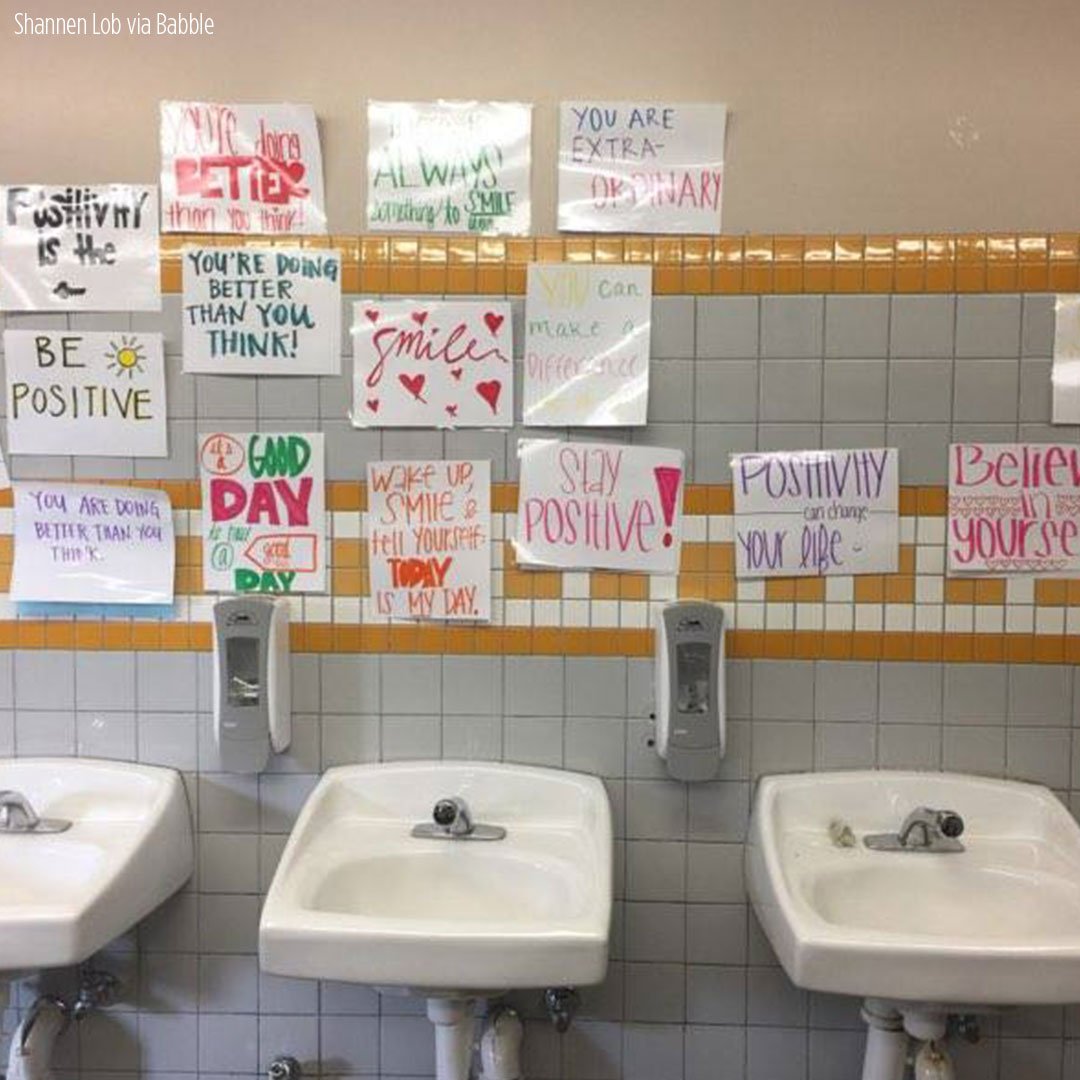 Shannen Lob via Babble
YOU'RE doing
BETTER
than you think!
ALWAYS
something to SMILE
YOU ARE
EXTRA-
ORDINARY
Positivity
is the
YOU'RE DOING
BETTER
THAN YOU
THINK!
smile
YOU can
make a
Difference
BE
POSITIVE
it's a
GOOD
DAY
to have
a good
DAY
wake up,
SMILE &
tell yourself:
TODAY
IS MY DAY.
Stay
POSITIVE!
POSITIVITY
can change
YOUR life
Believ
in
yourse
YOU ARE DOING
BETTER THAN YOU
THINK.